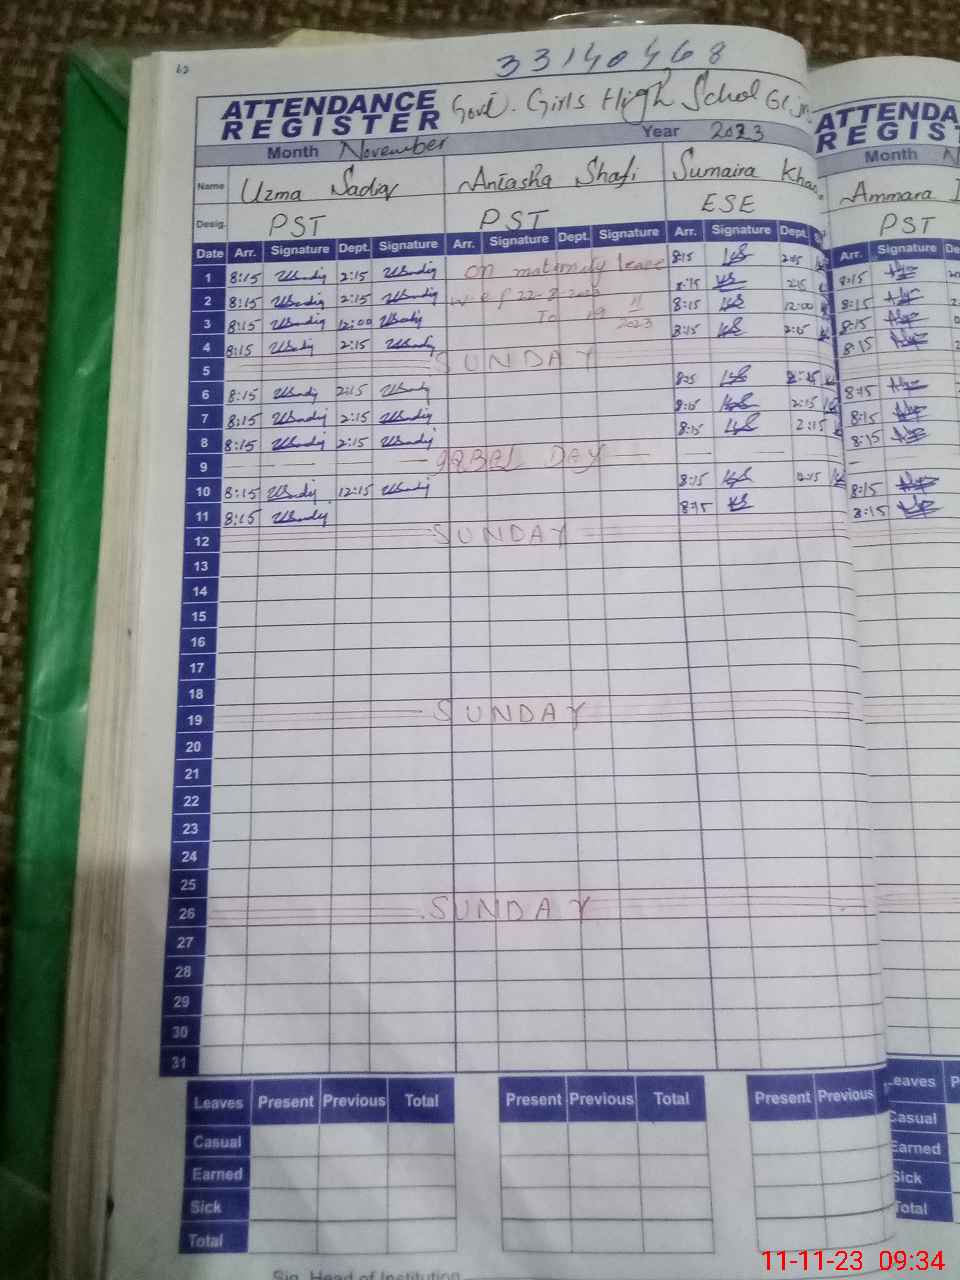 33140468
ATTENDANCE REGISTER Govt. Girls High School
Month November Year 2023
Name Uzma Sadiq Aniasha Shafi Sumaira Khan
Desig. PST PST ESE
Date Arr. Signature Dept. Signature Arr. Signature Dept. Signature Arr. Signature Dept.
1 8:15 2:15 on maternity leave 8:15 2:15
2 8:15 2:15 w.e.f 22-8-2023 8:15 2:15
3 8:15 12:00 To 19 11 2023 8:15 12:00
4 8:15 2:15 8:15 2:15
5 SUNDAY
6 8:15 2:15 8:15 2:15
7 8:15 2:15 8:15 2:15
8 8:15 2:15 8:15 2:15
9 IQBAL DAY
10 8:15 12:15 8:15 12:15
11 8:15 8:15
12 SUNDAY
13
14
15
16
17
18
19 SUNDAY
20
21
22
23
24
25
26 SUNDAY
27
28
29
30
31
Leaves Present Previous Total Present Previous Total Present Previous
Casual
Earned
Sick
Total
Sig. Head of Institution
ATTENDA
REGIST
Month
Ammara
PST
Arr. Signature De
8:15
8:15
8:15
8:15
8:15
8:15
8:15
8:15
8:15
Leaves P
Casual
Earned
Sick
Total
11-11-23 09:34